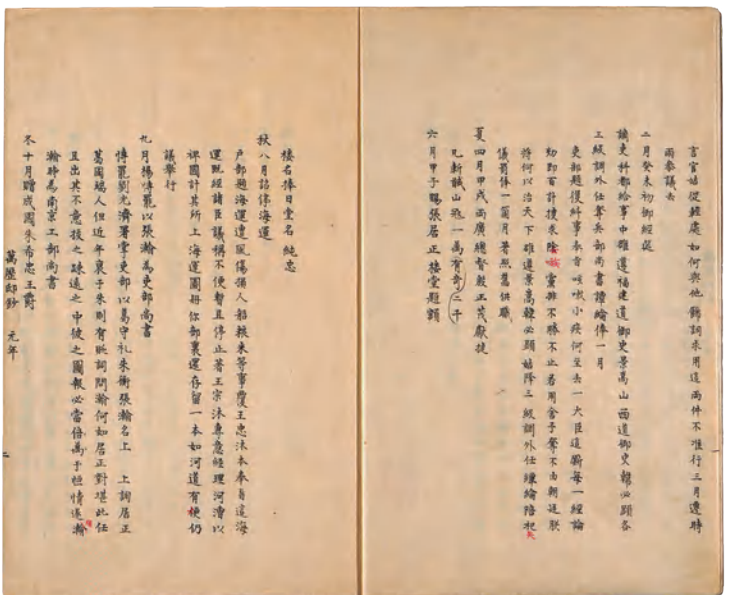 言官姑從輕處如何與他飾詞求用這兩件不准行三月遭時
兩參議去
二月癸未初御經筵
謫吏科都給事中雒遵福建道御史景嵩山西道御史韓必顯各
三級調外任奪兵部尚書譚綸俸一月
吏部題復糾事奉旨咳嗽小疾何至去一大臣這厮每一經論
劾即百計搜求陰 黨排不勝不止若用舍予奪不由朝廷朕
將何以治天下雒遵景嵩韓必顯姑降三級調外任譚綸陪祀失
儀罰俸一箇月著照舊供職
夏四月甲戌兩廣總督殷正茂獻捷
凡斬馘山逃一萬有奇二千
六月甲子賜張居正樓堂題額
樓名捧日堂名純忠
秋八月詔停海運
戶部題海運遭風傷損人船粮米等事覆王忠沐本奉旨這海
運既經諸臣議稱不便暫且停止著王宗沐專意經理河漕以
裨國計其所上海運圖冊你部裏還存留一本如河道有梗仍
議舉行
九月楊博罷以張瀚為吏部尚書
博罷劉光濟署掌吏部以葛守礼朱衡張瀚名上 上詢居正
葛國端人但近年衰于朱則有貶詞問瀚何如居正對堪此任
且出其不意拔之疎遠之中彼之圖報必當倍萬于恒情遂
瀚時為南京工部尚書
冬十月贈成國朱希忠王爵
萬歷邸鈔 元年
二